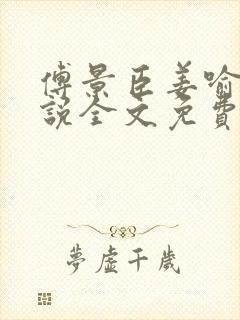 傅景臣姜喻
說全文免費
夢虛千歲